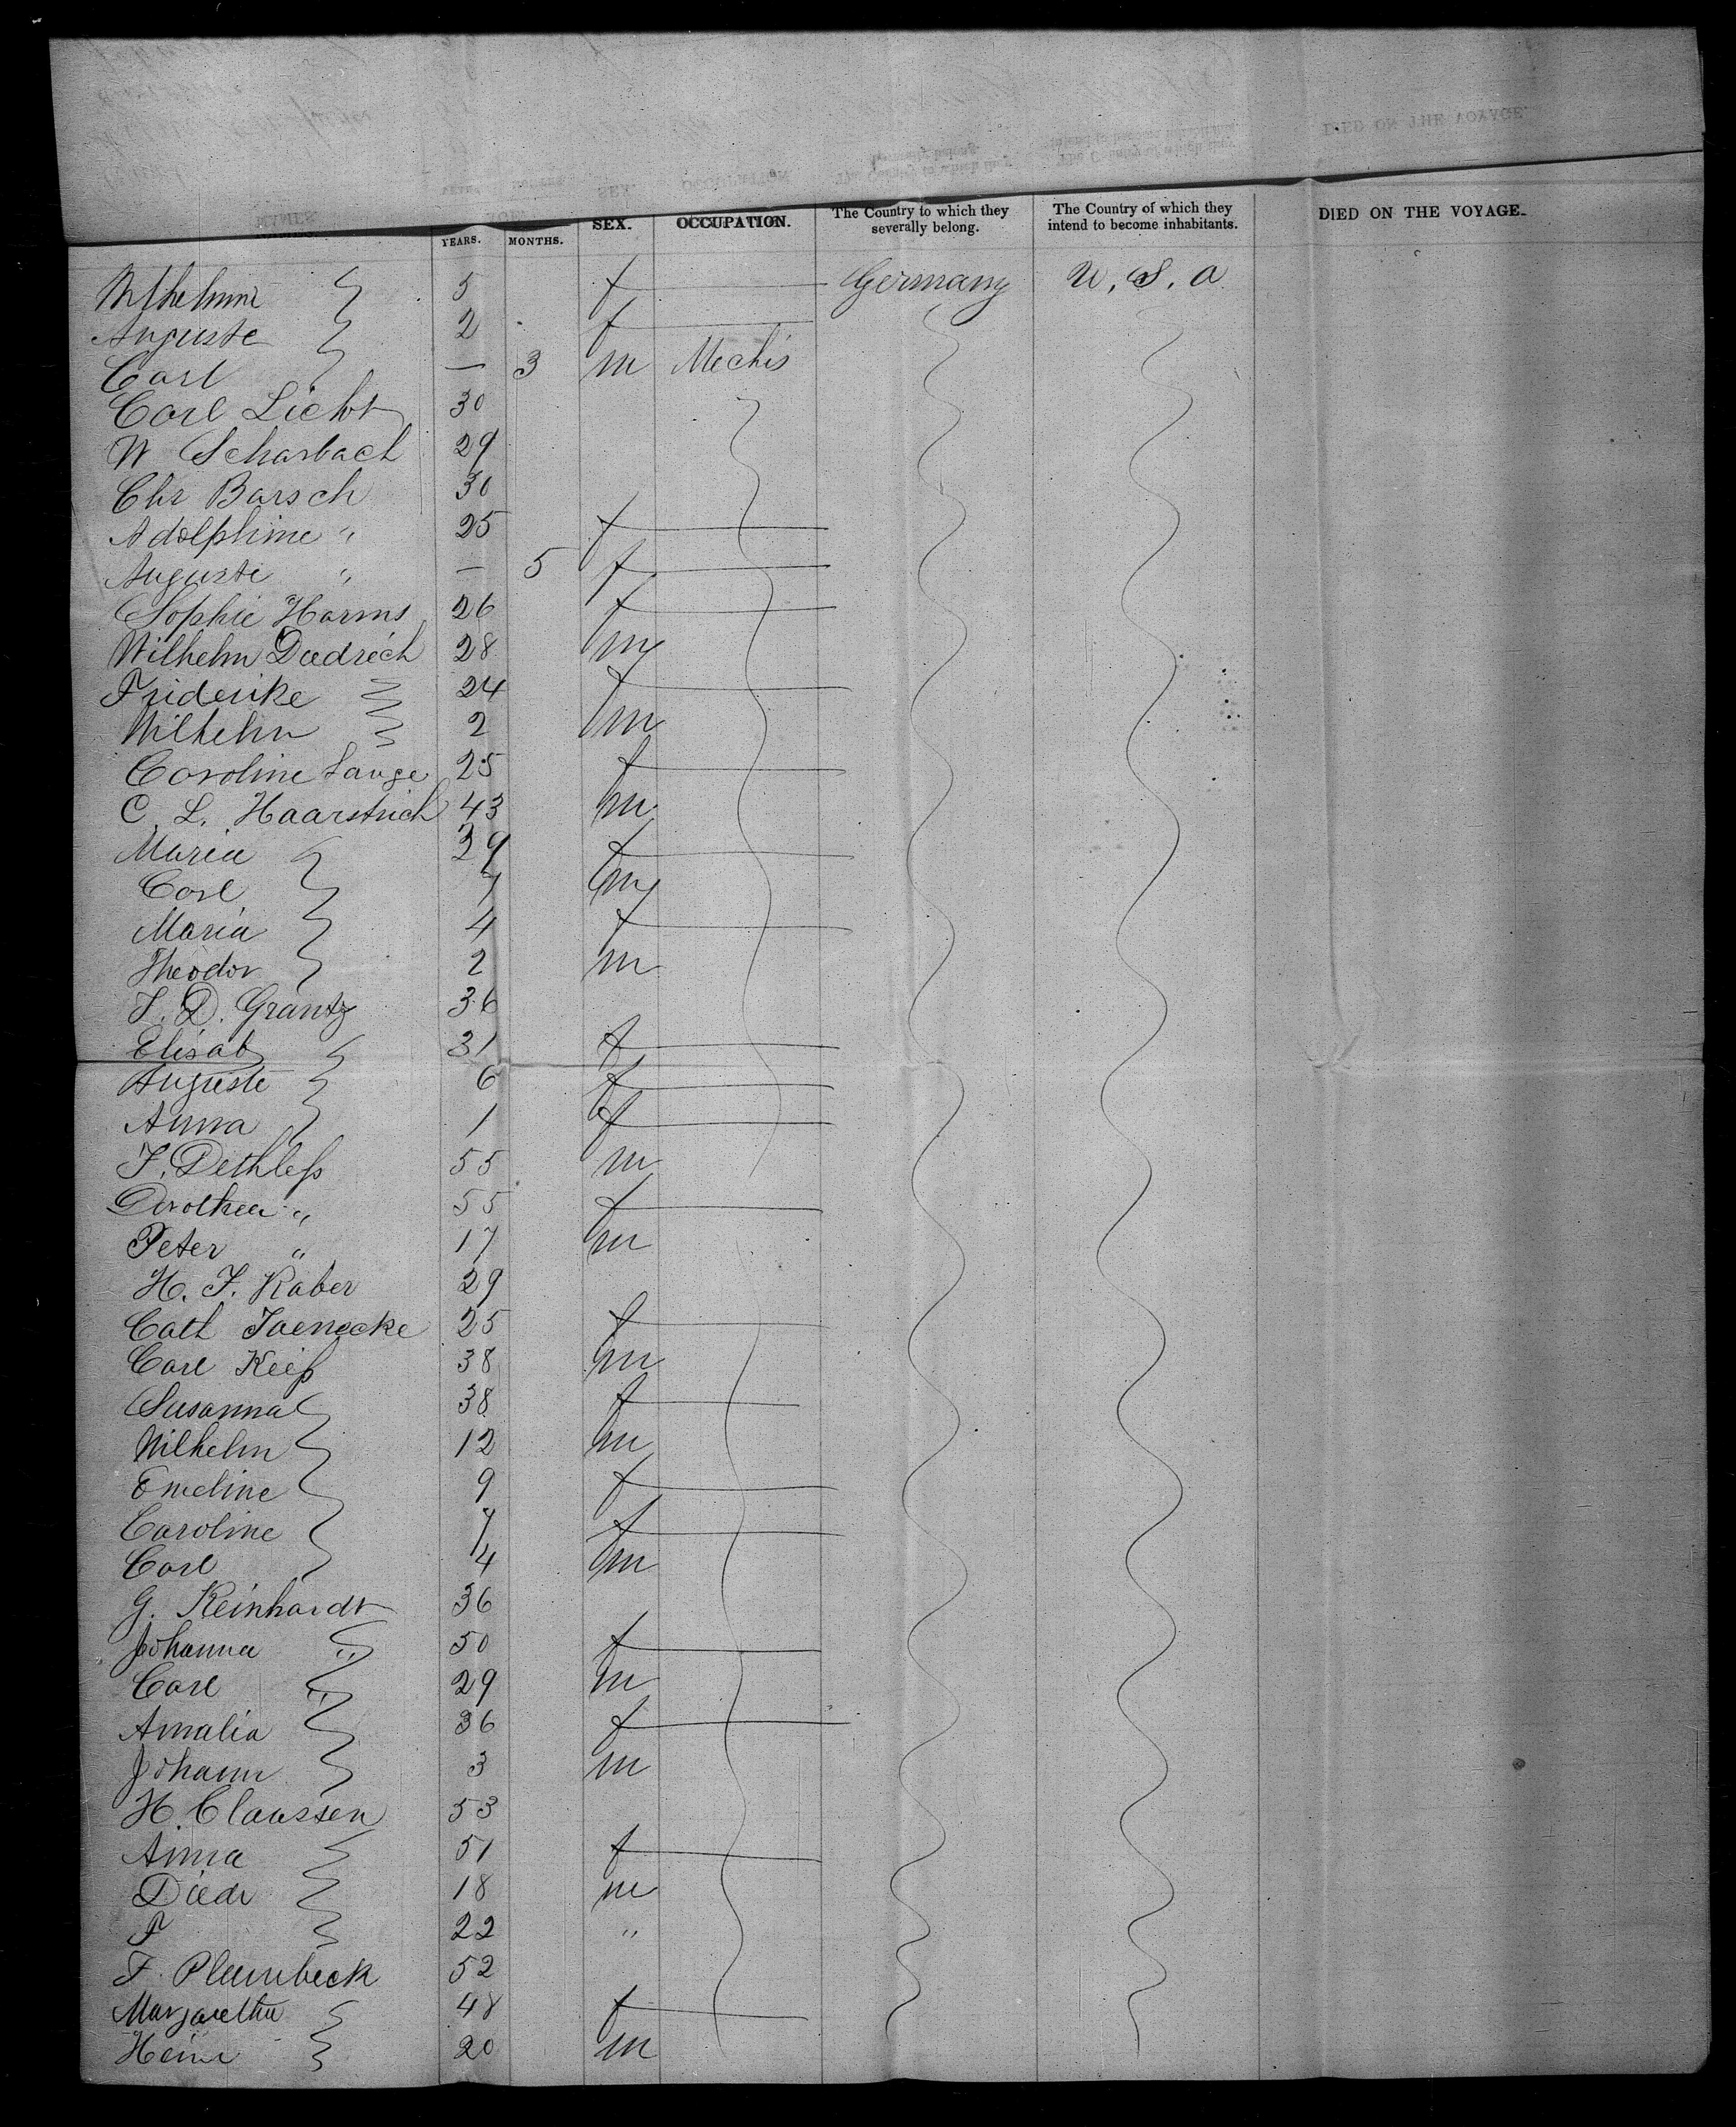 YEARS. MONTHS. SEX. OCCUPATION. The Country to which they severally belong. The Country of which they intend to become inhabitants. DIED ON THE VOYAGE.
5 f Germany U. S. A
Auguste 2 f
Carl — 3 m Mechis
Carl Licht 30
W Scharbach 29
Chr Barsch 30
Adolphine " 25 f
Auguste " — 5 f
Sophie Harms 26 f
Wilhelm Diedrich 28 m
Friderike 24 f
Wilhelm 2 m
Caroline Lange 25 f
C. L. Haarstrich 43 m
Maria 39 f
Carl 7 m
Maria 4 f
Theodor 2 m
J. D. Grantz 36
Elisab 31 f
Auguste 6 f
Anna 1 f
J. Dethlefs 55 m
Dorothea " 55 f
Peter " 17 m
H. J. Raber 29
Cath Jaenecke 25 f
Carl Keiß 38 m
Susanna 38 f
Wilhelm 12 m
Emeline 9 f
Caroline 7 f
Carl 4 m
G. Reinhardt 36
Johanna " 50 f
Carl " 29 m
Amalia 36 f
Johann 3 m
H. Claussen 53
Anna 51 f
Diedr 18 m
F 22 "
F. Plambeck 52
Margaretha 48 f
Heinr 20 m